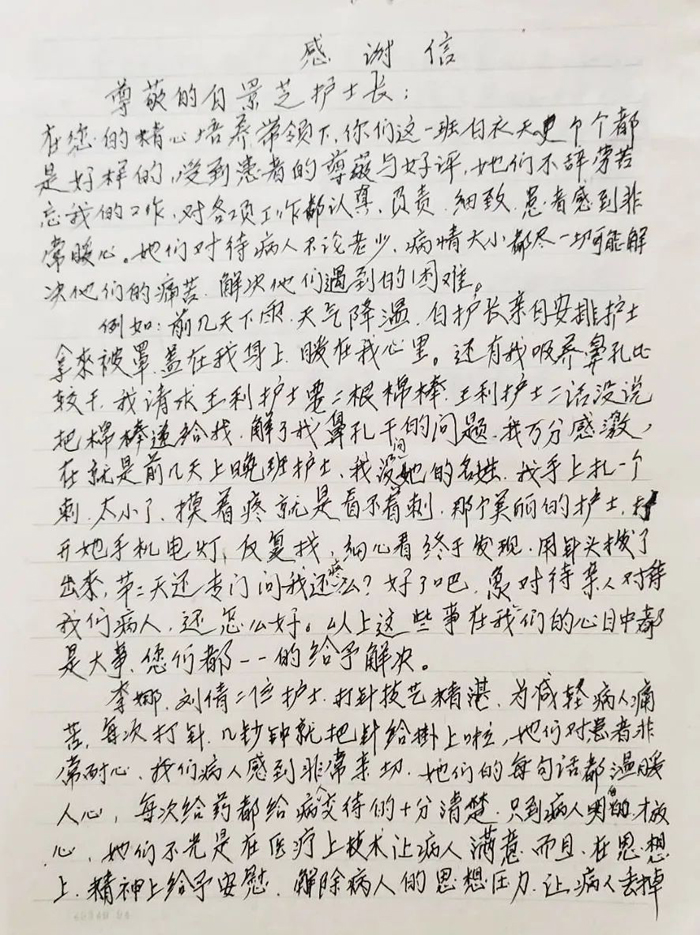 感谢信
尊敬的白景芝护士长：
在您的精心培养带领下,你们这一班白衣天使个个都
是好样的,受到患者的尊敬与好评,她们不辞劳苦
忘我的工作,对各项工作都认真,负责.细致.患者感到非
常暖心。她们对待病人不论老少,病情大小都尽一切可能解
决他们的痛苦.解决他们遇到的困难。
例如:前几天下雨.天气降温.白护长亲自安排护士
拿来被罩.盖在我身上.暖在我心里。还有我吸养鼻孔比
较干.我请求王利护士要二根棉棒.王利护士二话没说
把棉棒递给我.解了我鼻孔干的问题.我万分感激,
在就是前几天上晚班护士、我没问她的名姓.我手上扎一个
刺.太小了.摸着疼就是看不着刺.那个美丽的护士,打
开她手机电灯,反复找,细心看终于发现.用针头拨了
出来,第二天还专门问我还疼么?好了吧,象对待亲人对待
我们病人,还怎么好。以上这些事在我们的心目中都
是大事.您们都一一的给予解决。
李娜.刘倩二位护士.打针技艺精湛.为减轻病人痛
苦,每次打针.几钞钟就把针给掛上啦,她们对患者非
常耐心.我们病人感到非常亲切.她们的每句话都温暖
人心,每次给药都给病人交待的十分清楚.只到病人明白的.才放
心.她们不光是在医疗上技术让病人满意.而且.在思想
上.精神上给予安慰.解除病人的思想压力.让病人丢掉